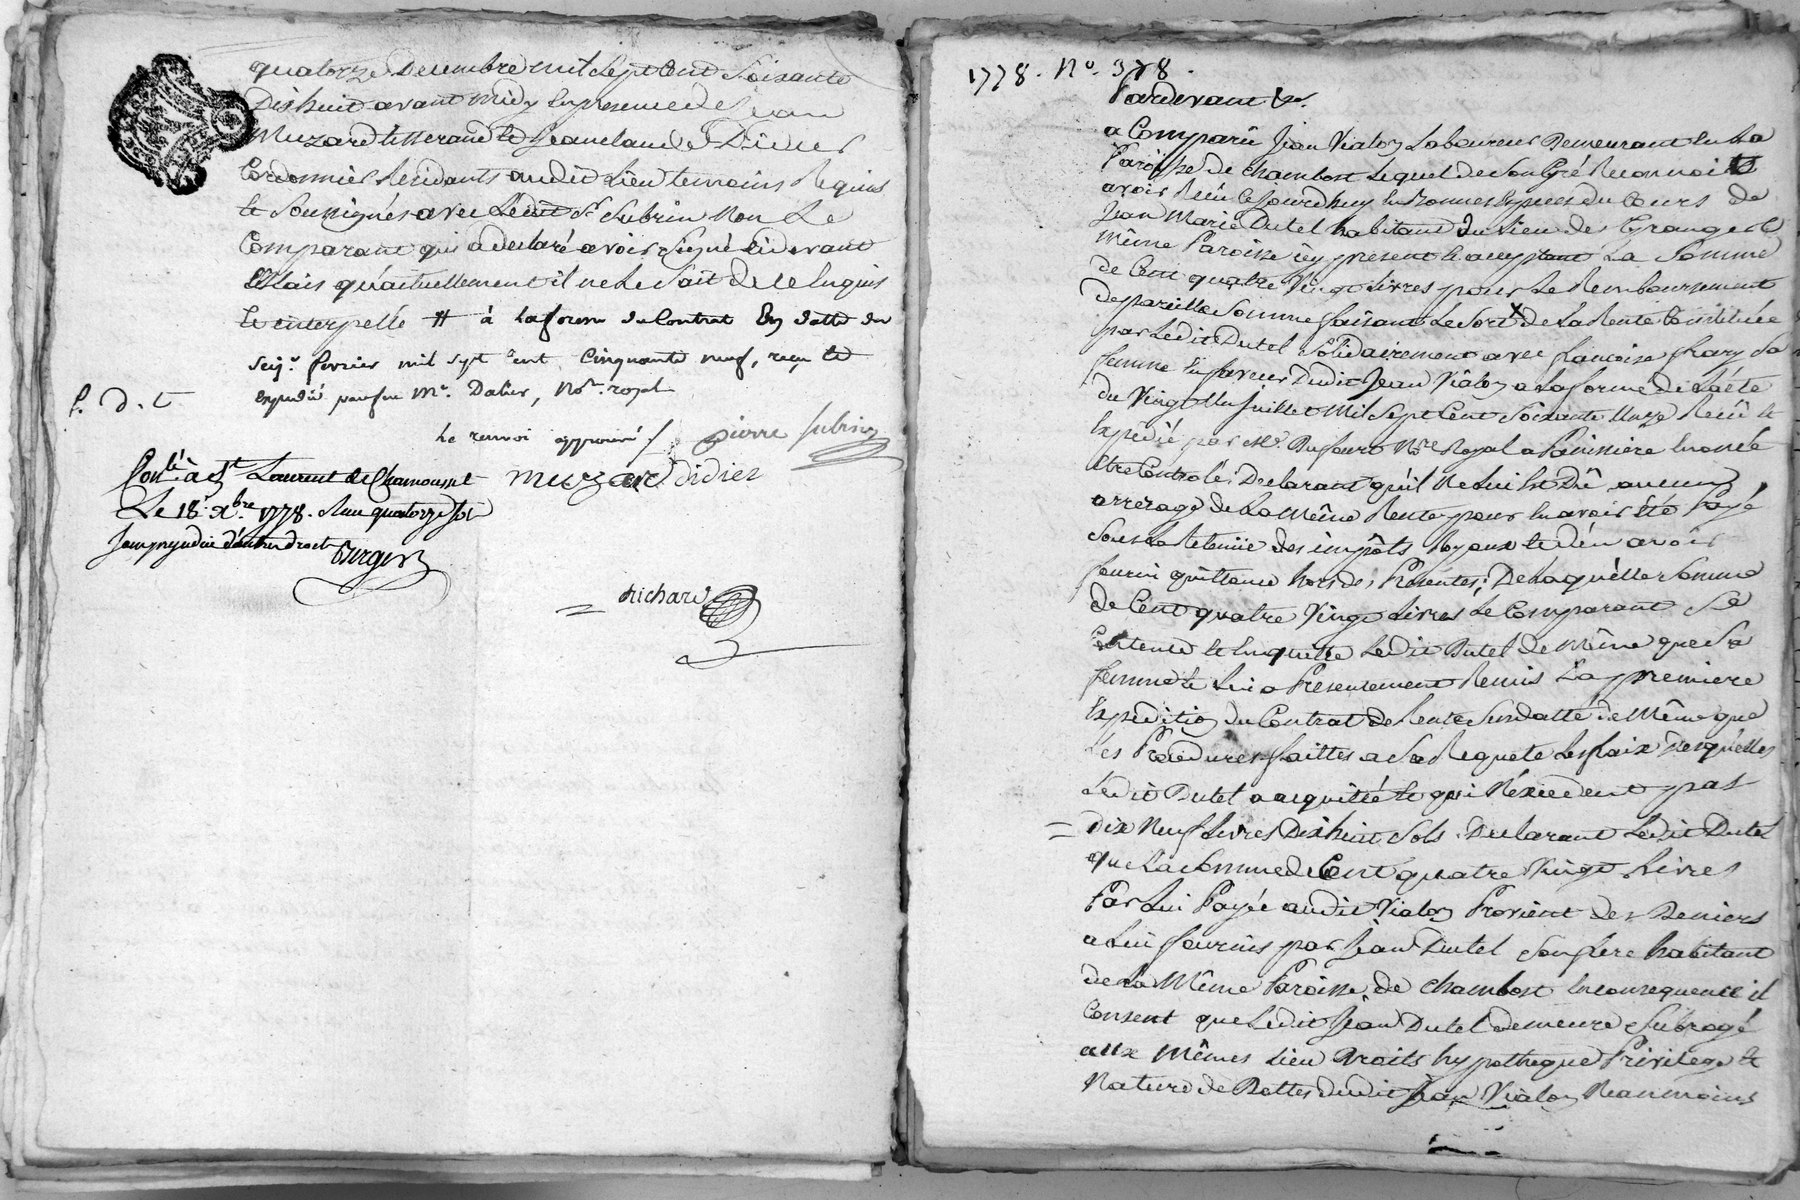 quatorze Decembre mil Sept Cent Soixante
Dixhuit avant midy En presence de Jean
Muzard tisserand et Jean claude Didier
Cordonnier Residants audit Lieu temoins Requis
et Soussignés avec Ledit Sr. Subrin Non Le
Comparant qui a declaré avoir Signé Cidevant
Mais qu'actuellement il ne Le Sait de ce Enquis
et enterpellé # à La forme du Contrat En datte du
seize fevrier mil sept cent Cinquante neuf, reçu et
expedié par feu Me. Not. royal
P. D. t.
Le renvoi approuvé / pierre Subrin
muzard Didier
Conlé à St Laurent de Chamousset
Le 18 Xbre 1778. Reçu quatorze sols
sans prejudice d'autre droit
richard
1778. No. 378.
Pardevant &c.
a Comparû Jean Vialon Laboureur Demeurant En La
Paroisse de chambost Lequel de Son gré Reconnoit
avoir Reçu Cejourdhuy En Bonnes Especes du Cours de
Jean Marie Dutel habitant du Lieu de
même Paroisse icy present et acceptant La Somme
de Cent quatre Vingt Livres pour Le Remboursement
de pareille Somme faisant Le Sort X de La Rente Constituée
par Ledit Dutel Solidairement avec françoise Sa
femme En faveur Dudit Jean Vialon a La forme de L'acte
du Vingt Un Juillet Mil Sept Cent Soixante Unze Reçû et
Expedié par Me. Dufour Nre. Royal a
être Controlé; Declarant qu'il Ne Lui Est Dû aucuns
arrerage de La Même Rente pour En avoir été Payé
Sous La Retenüe des impôts Royaux et d'En avoir
fourni quittance hors des Presentes; De Laquelle Somme
de Cent quatre Vingt Livres Le Comparant Se
Contente et En quitte Ledit Dutel de Même que Sa
femme et Lui a Presentement Remis La premiere
Expedition du Contrat de Rente Susdatté de Même que
Les Procedures faittes a Sa Requete Les fraix desquelles
Ledit Dutel a acquitté et qui N'excedent pas
= Dix Neuf Livres Dixhuit Sols. Declarant Ledit Dutel
que La Somme de Cent quatre Vingt Livres
Par Lui Payée audit Vialon Provient des Deniers
a Lui fournis par Jean Dutel Son frere habitant
de La Même Paroisse de chambost En consequence il
Consent que Ledit Jean Dutel demeure Subrogé
aux Mêmes Lieu Droits hypotheque Privilege et
Nature de Dettes dudit Jean Vialon Neanmoins